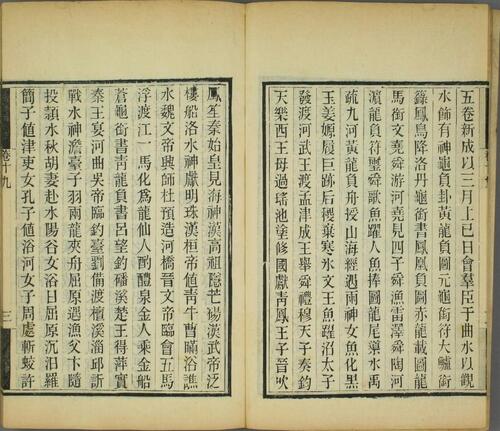 五卷新成以三月上巳日會羣臣于曲水以觀
水飾有神龜負卦黃龍負圖元龜銜符大鱸銜
籙鳳鳥降洛丹龜銜書鳳凰負圖赤龍載圖龍
馬銜文堯舜游河堯見四子舜漁雷澤舜陶河
濵龍負符璽舜歌魚躍人魚捧圖龍尾導水禹
疏九河黃龍負舟授山海經遇兩神女魚化黑
玉姜嫄履巨跡后稷棄寒氷文王魚躍沼太子
發渡河武王渡孟津成王舉舜禮穆天子奏鈞
天樂西王母過瑤池塗修國獻靑鳳王子晉吹
鳳笙秦始皇見海神漢高祖隱芒碭漢武帝泛
樓船洛水神獻明珠漢桓帝値靑牛曹瞞浴譙
水魏文帝興師杜預造河橋晉文帝臨會五馬
浮渡江一馬化爲龍仙人酌醴泉金人乘金船
蒼龜銜書靑龍負書呂望釣磻溪楚王得萍實
秦王宴河曲吳帝臨釣臺劉備渡檀溪淄邱訢
戰水神澹臺子羽兩龍夾舟屈原遇漁父卞隨
投潁水秋胡妻赴水陽谷女浴日屈原沉汨羅
簡子値津吏女孔子値浴河女子周處斬蛟許
卷十九
三